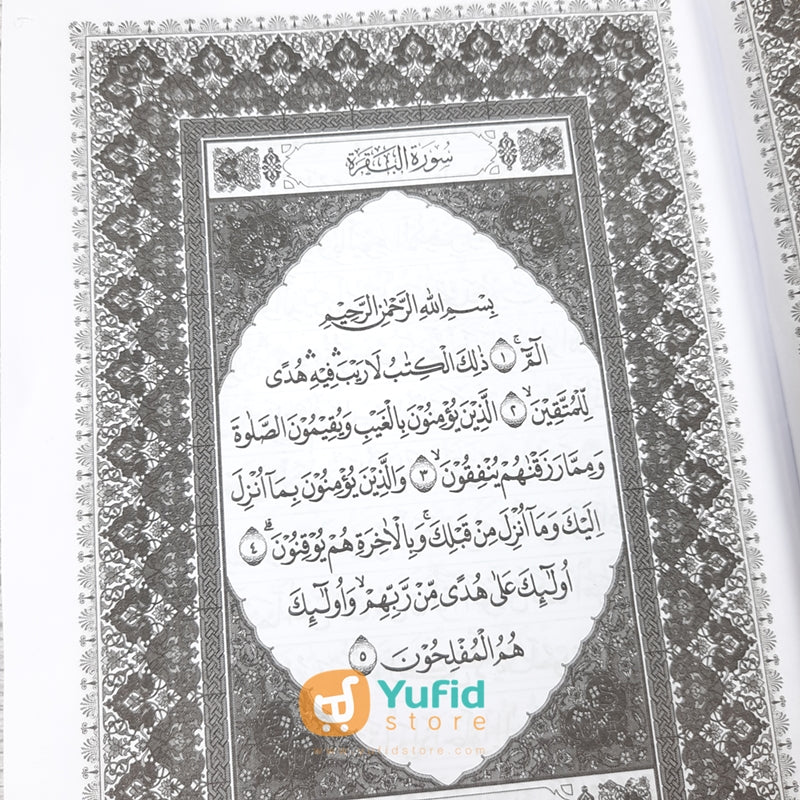 سُورَةُ الْبَقَرَةِ
بِسْمِ اللهِ الرَّحْمٰنِ الرَّحِيْمِ
الۤمّۤ ۚ ١ ذٰلِكَ الْكِتٰبُ لَا رَيْبَ ۛ فِيْهِ ۛ هُدًى
لِّلْمُتَّقِيْنَ ۙ ٢ الَّذِيْنَ يُؤْمِنُوْنَ بِالْغَيْبِ وَيُقِيْمُوْنَ الصَّلٰوةَ
وَمِمَّا رَزَقْنٰهُمْ يُنْفِقُوْنَ ۙ ٣ وَالَّذِيْنَ يُؤْمِنُوْنَ بِمَآ اُنْزِلَ
اِلَيْكَ وَمَآ اُنْزِلَ مِنْ قَبْلِكَ ۚ وَبِالْاٰخِرَةِ هُمْ يُوْقِنُوْنَ ۗ ٤
اُولٰۤىِٕكَ عَلٰى هُدًى مِّنْ رَّبِّهِمْ ۙ وَاُولٰۤىِٕكَ
هُمُ الْمُفْلِحُوْنَ ٥
Yufid
store